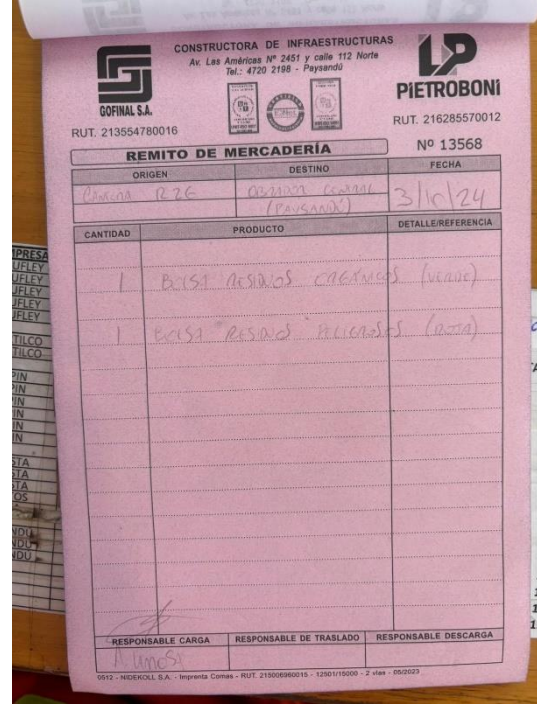 CONSTRUCTORA DE INFRAESTRUCTURAS
Av. Las Américas Nº 2451 y calle 112 Norte
Tel.: 4720 2198 - Paysandú
GOFINAL S.A.
LP
PIETROBONI
RUT. 213554780016
RUT. 216285570012
REMITO DE MERCADERÍA
Nº 13568
ORIGEN
DESTINO
FECHA
R26
OBRADOR CENTRAL
(PAYSANDÚ)
3/10/24
CANTIDAD
PRODUCTO
DETALLE/REFERENCIA
1 RESIDUOS ORGÁNICOS (VERDE)
1 RESIDUOS PELIGROSOS (ROJA)
RESPONSABLE CARGA
RESPONSABLE DE TRASLADO
RESPONSABLE DESCARGA
0512 - NIDEKOLL S.A. - Imprenta Comas - RUT. 215006960015 - 12501/15000 - 2 vías - 05/2023
UFLEY
UFLEY
UFLEY
UFLEY
TILCO
TILCO
PIN
IN
PIN
IN
IN
IN
STA
STA
STA
OS
NDU
NDU
NDU